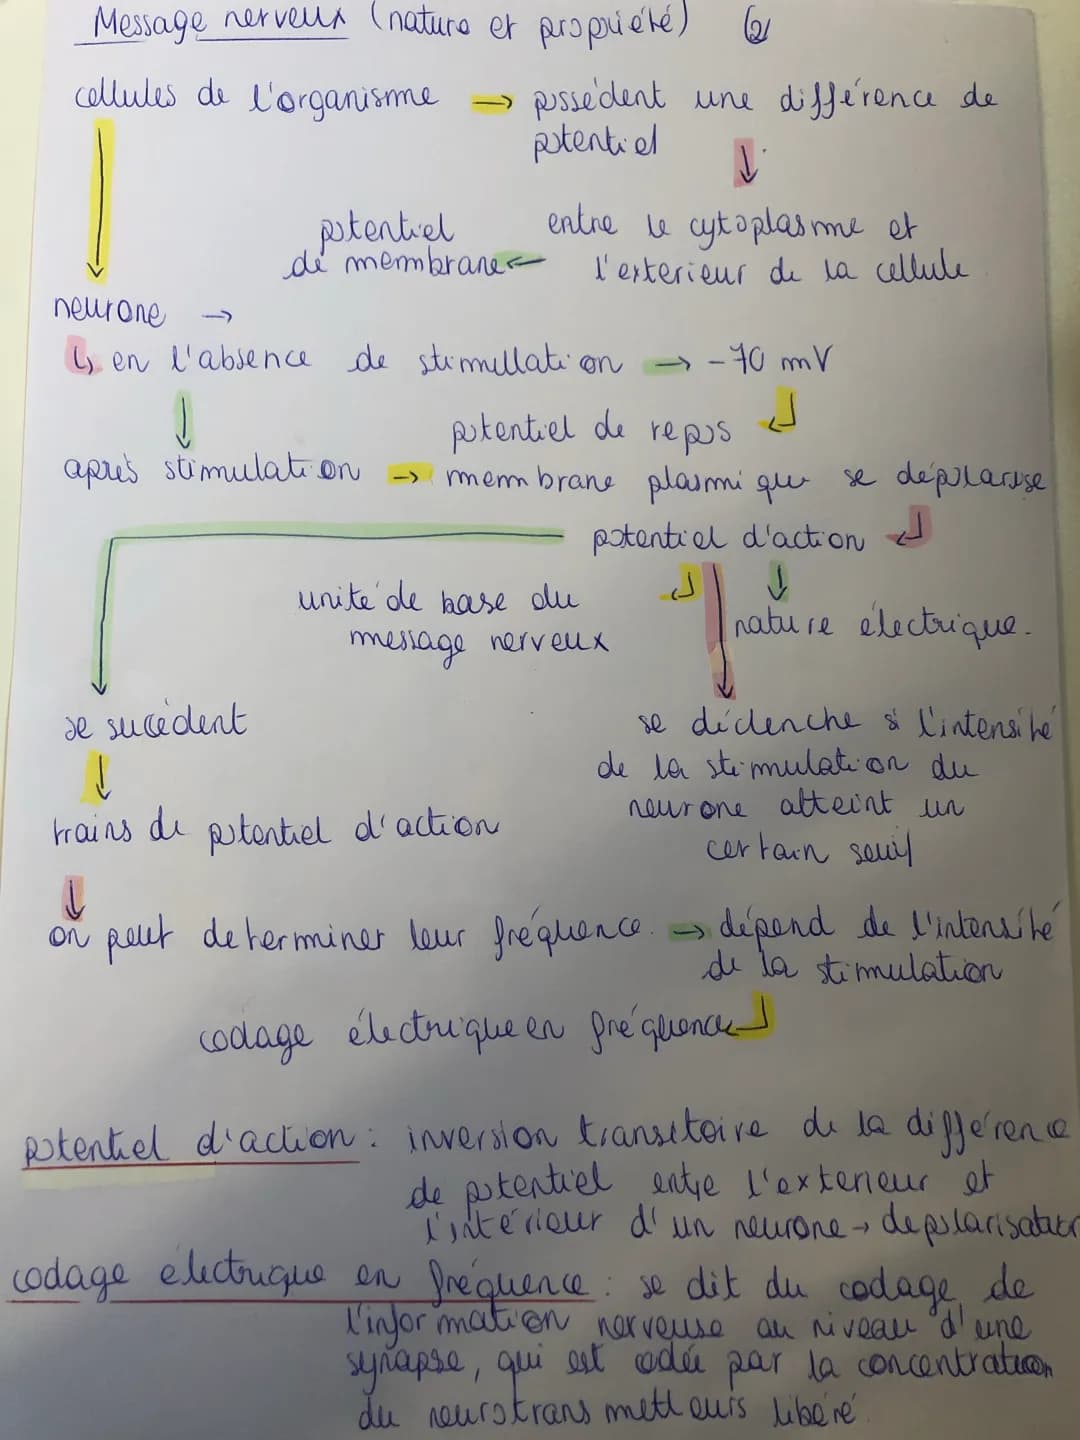 Message nerveux (nature et propriété) (2)
cellules de l'organisme → possédent une différence de
potentiel ↓
potentiel entre le cytoplasme et
de membrane ← l'exterieur de la cellule
neurone →
↳ en l'absence de stimullation → -70 mV
potentiel de repos
après stimulation → membrane plasmique se dépolarise
potentiel d'action
unité de base du
message nerveux
nature électrique.
se succédent
se déclenche si l'intensité
de la stimulation du
neurone atteint un
certain seuil
trains de potentiel d'action
on peut determiner leur fréquence. → dépend de l'intensité
de la stimulation
codage électrique en fréquence
potentiel d'action : inversion transitoire de la différence
de potentiel entre l'exterieur et
l'intérieur d'un neurone → depolarisation
codage électrique en fréquence : se dit du codage de
l'information nerveuse au niveau d'une
synapse, qui est codée par la concentration
du neurotransmetteurs libéré.